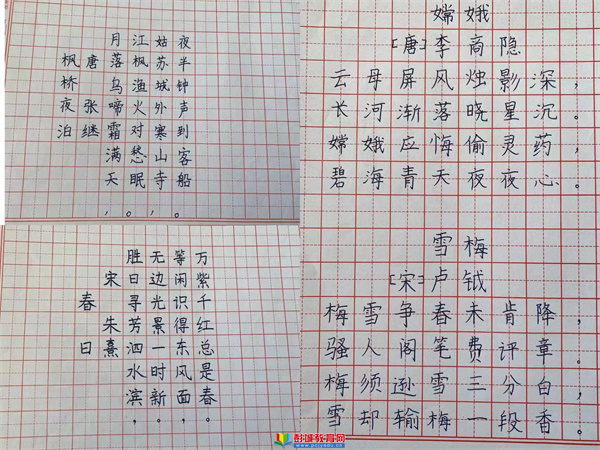 枫桥夜泊
唐 张继
月落乌啼霜满天，
江枫渔火对愁眠。
姑苏城外寒山寺，
夜半钟声到客船。
春日
宋 朱熹
胜日寻芳泗水滨，
无边光景一时新。
等闲识得东风面，
万紫千红总是春。
嫦娥
[唐]李商隐
云母屏风烛影深，
长河渐落晓星沉。
嫦娥应悔偷灵药，
碧海青天夜夜心。
雪梅
[宋]卢钺
梅雪争春未肯降，
骚人阁笔费评章。
梅须逊雪三分白，
雪却输梅一段香。
彭城教育网